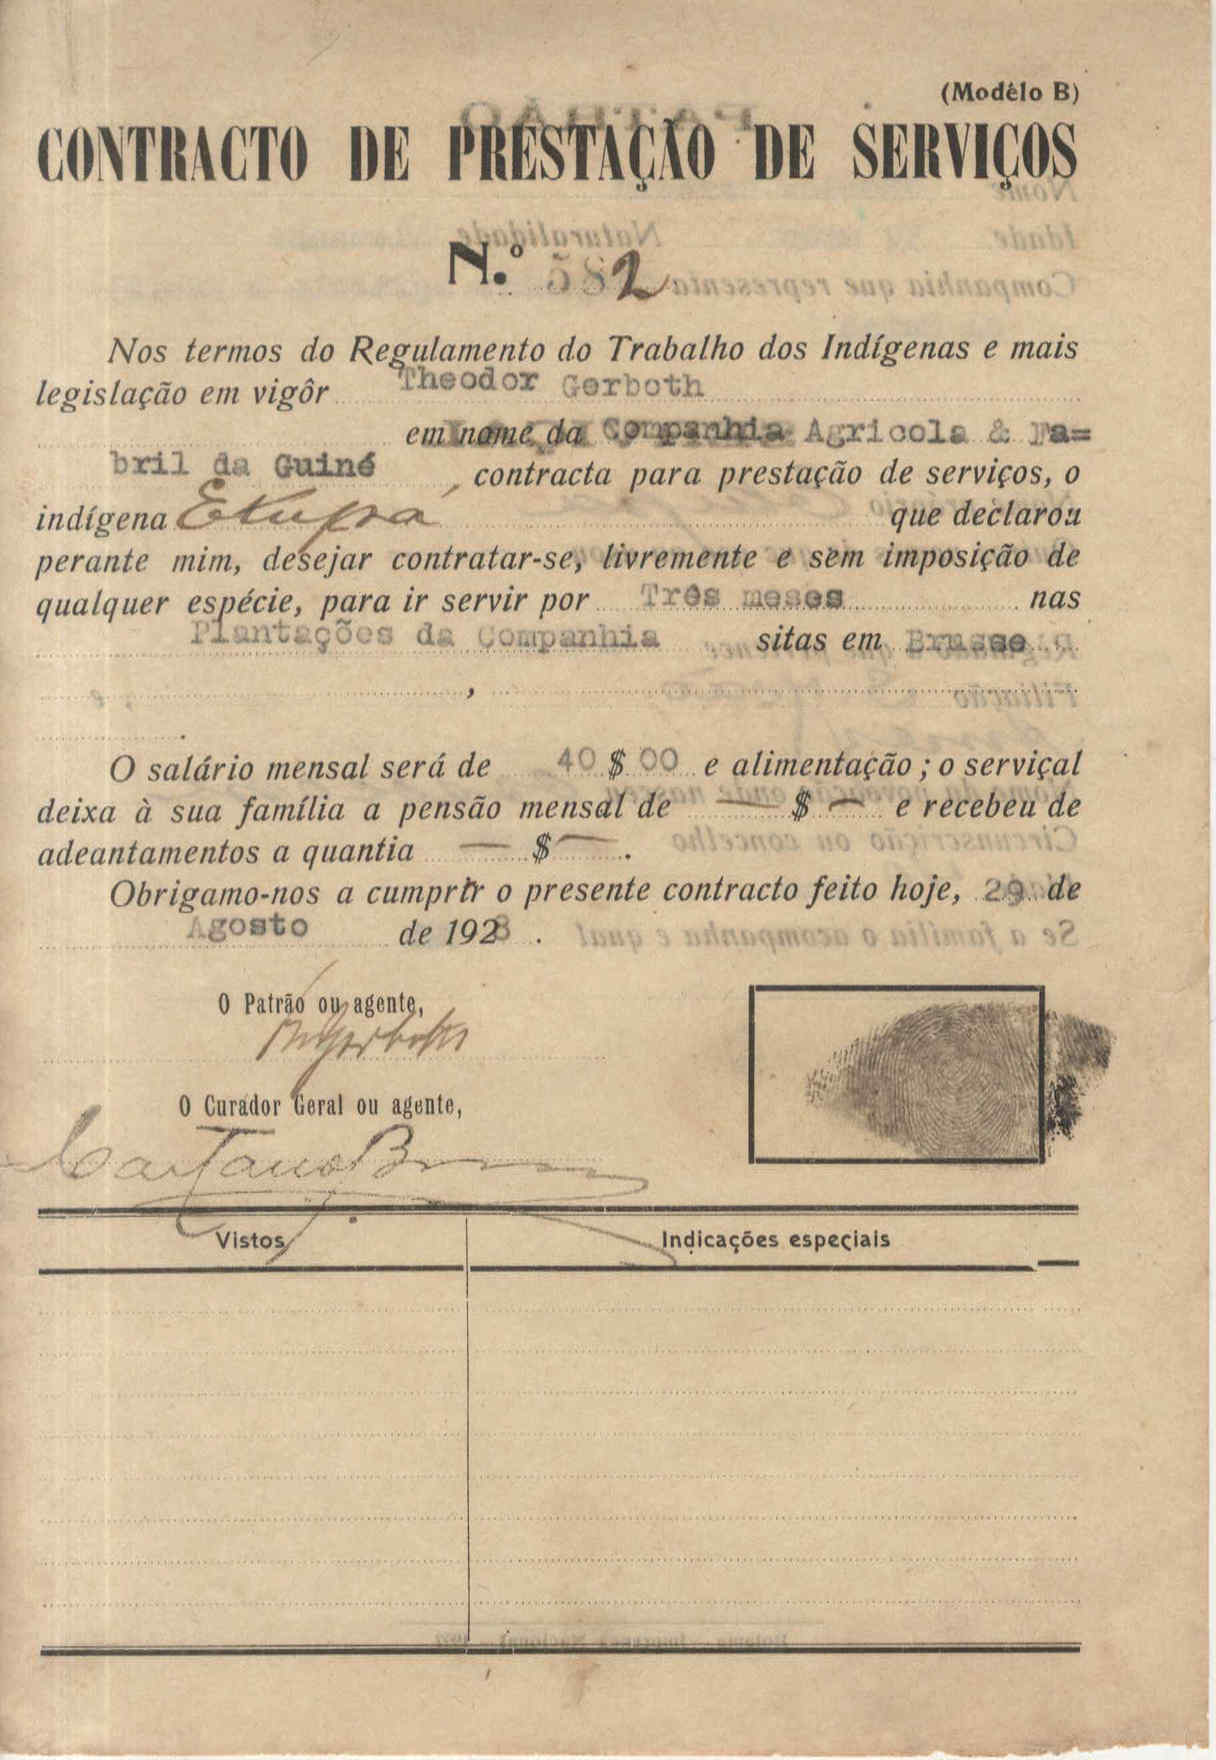 (Modêlo B)
CONTRACTO DE PRESTAÇÃO DE SERVIÇOS
N.º 582
Nos termos do Regulamento do Trabalho dos Indígenas e mais
legislação em vigôr Theodor Gerboth
em nome da Companhia Agricola & Fa=
bril da Guiné, contracta para prestação de serviços, o
indígena Ekupá que declarou
perante mim, desejar contratar-se, livremente e sem imposição de
qualquer espécie, para ir servir por Três meses nas
Plantações da Companhia sitas em Brusse
,
.
O salário mensal será de 40 $ 00 e alimentação; o serviçal
deixa à sua família a pensão mensal de — $ — e recebeu de
adeantamentos a quantia — $ — .
Obrigamo-nos a cumprir o presente contracto feito hoje, 29 de
Agosto de 1928 .
O Patrão ou agente,
ThGerboth
O Curador Geral ou agente,
Caetano
Vistos
Indicações especiais